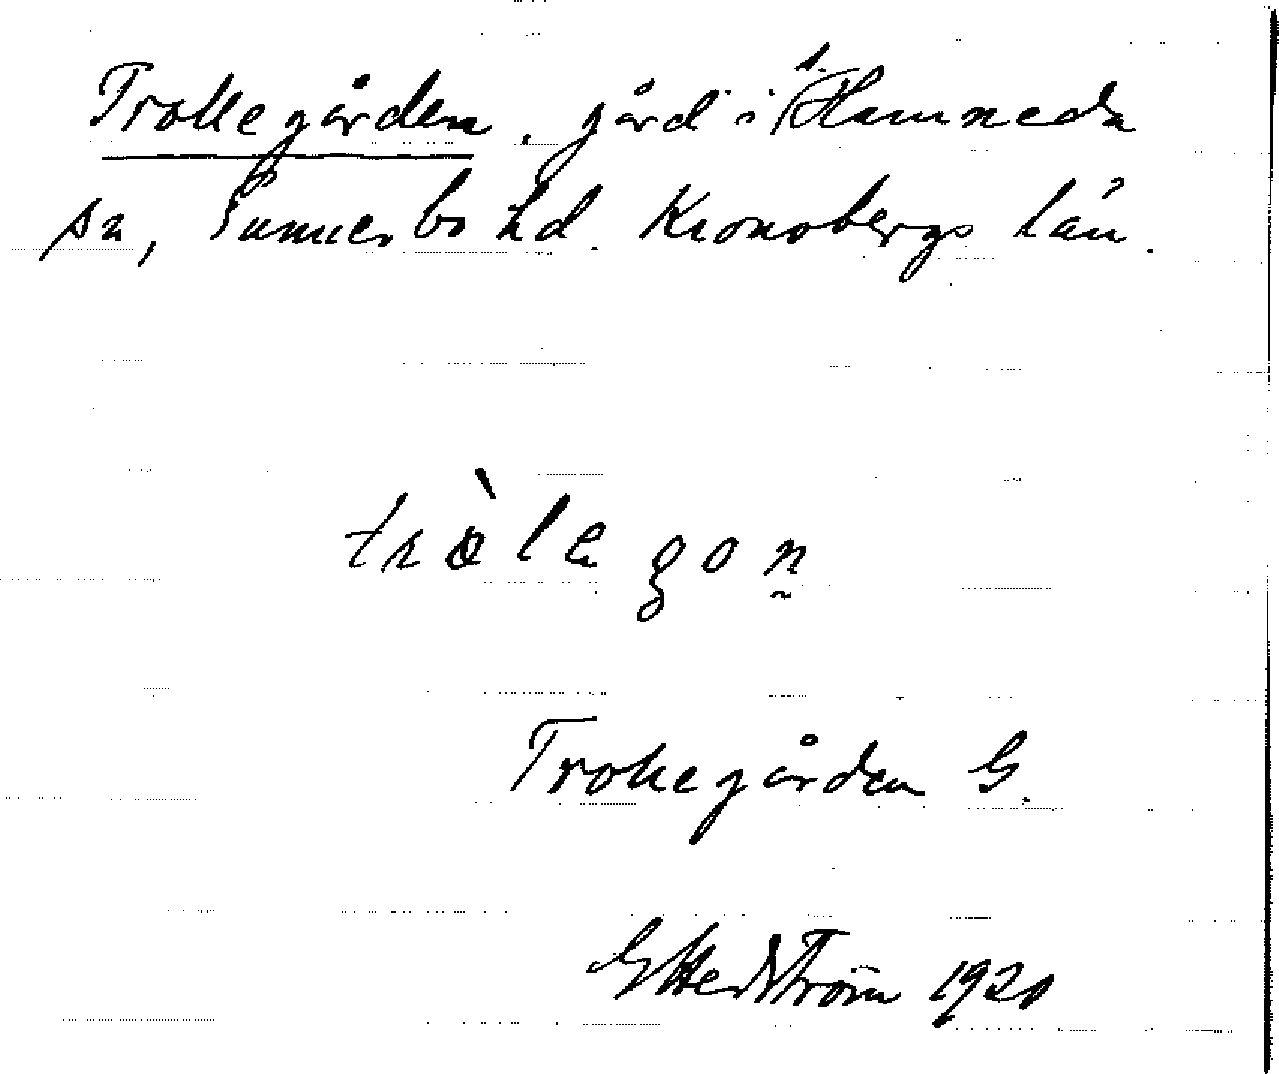 Trollegården, gård i s. Hamneda
sn, Sunnerbo hd. Kronobergs län.
tròle gon̰
Trollegården G.
G Hedström 1920